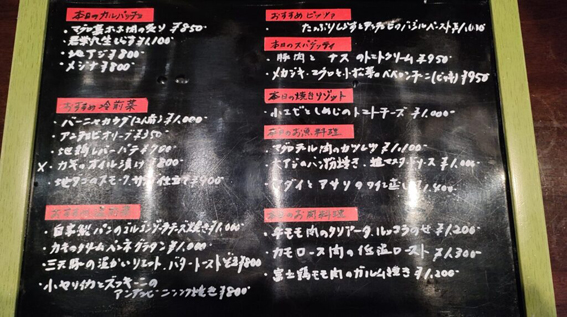 本日のカルパッチョ
・マグロ ホホ肉の炙り ¥850
・ 生しらす ¥1,100
・地アジ ¥800
・メジナ ¥800
おすすめ冷前菜
・バーニャカウダ(2人前) ¥1,000
・アンチョビオリーブ ¥350
・地鶏レバーパテ ¥700
×・カキのオイル漬け ¥800
・地タコのスモーク 仕立て ¥900
・自家製パンのゴルゴンゾーラチーズ焼き ¥1,000
・カキのクリームペンネグラタン ¥1,000
・三元豚の温かいリエット、バタートースト ¥800
・小ヤリイカとズッキーニの
アンチョビ 焼き ¥800
おすすめピッツァ
・たっぷりしらすと のバジルペースト ¥1,100
本日のスパゲッティ
・豚肉とナスのトマトクリーム ¥950
・メカジキ、マグロと小松菜のペペロンチーニ(ピリ辛) ¥950
本日の焼きリゾット
・小エビとしめじのトマトチーズ ¥1,000
本日のお魚料理
・マグロテール肉のカツレツ ¥1,100
・大アジのパン粉焼き、粒マスタードソース ¥1,000
・マダイとアサリのワイン蒸し ¥1,400
本日のお肉料理
・牛モモ肉のタリアータ、ルッコラのせ ¥1,200
・カモロース肉の低温ロースト ¥1,300
・富士鶏モモ肉のガルム焼き ¥1,200